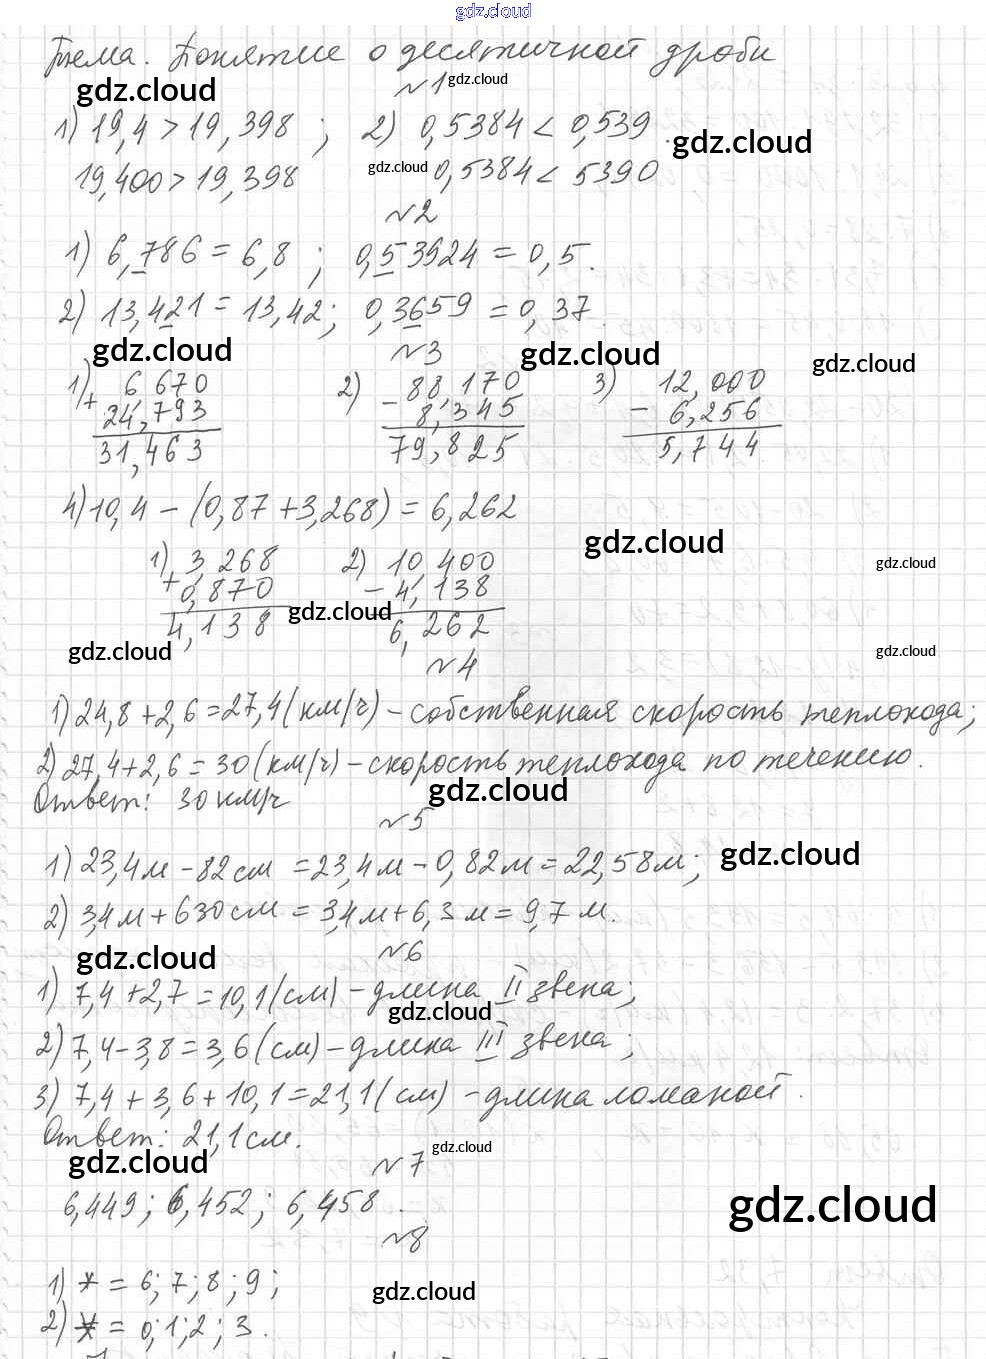 gdz.cloud
Тема. Понятие о десятичной дроби
gdz.cloud №1 gdz.cloud
1) 19,4 > 19,398 ; 2) 0,5384 < 0,539 .
gdz.cloud
19,400 > 19,398 gdz.cloud 0,5384 < 5390
№2
1) 6,786 = 6,8 ; 0,53924 = 0,5.
2) 13,421 = 13,42; 0,3659 = 0,37.
gdz.cloud №3 gdz.cloud gdz.cloud
1) + 6,670 2) - 88,170 3) 12,000
24,793 8,345 - 6,256
31,463 79,825 5,744
4) 10,4 - (0,87 + 3,268) = 6,262
gdz.cloud
1) 3,268 2) 10 400 gdz.cloud
+ 0,870 - 4,138
gdz.cloud
4,138 6,262
gdz.cloud №4 gdz.cloud
1) 24,8 + 2,6 = 27,4 (км/ч) - собственная скорость теплохода;
2) 27,4 + 2,6 = 30 (км/ч) - скорость теплохода по течению.
Ответ: 30 км/ч gdz.cloud
№5
1) 23,4 м - 82 см = 23,4 м - 0,82 м = 22,58 м; gdz.cloud
2) 3,4 м + 630 см = 3,4 м + 6,3 м = 9,7 м.
gdz.cloud №6
1) 7,4 + 2,7 = 10,1 (см) - длина II звена;
gdz.cloud
2) 7,4 - 3,8 = 3,6 (см) - длина III звена;
3) 7,4 + 3,6 + 10,1 = 21,1 (см) - длина ломаной.
Ответ: 21,1 см.
gdz.cloud №7 gdz.cloud
6,449; 6,452; 6,458 . gdz.cloud
№8
1) * = 6; 7; 8; 9; gdz.cloud
2) * = 0; 1; 2; 3.